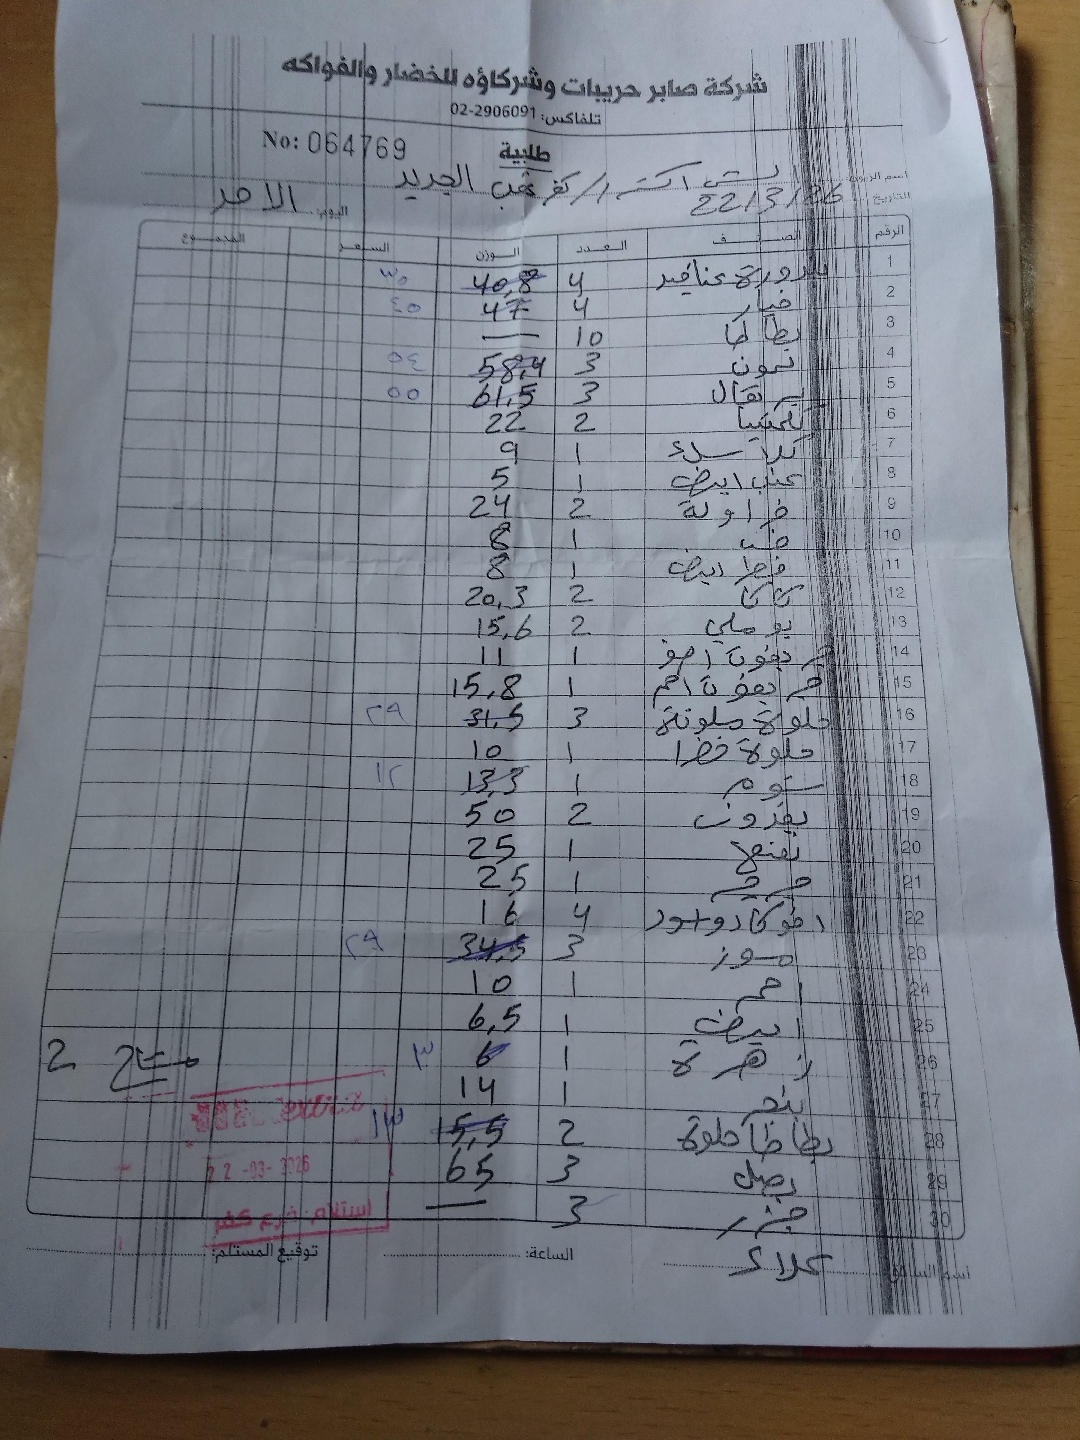 شركة صابر حريبات وشركاؤه للخضار والفواكه
تلفاكس: 02-2906091
No: 064769
طلبية
اسم الزبون: اكسترا / كفر عقب الجديد
التاريخ: 22/3/26 اليوم: الاحد
الرقم الصنف العدد الوزن السعر المجموع
1 بندورة عناقيد 4 40,8 ٣٥
2 خيار 4 47 ٤٥
3 بطاطا 10 —
4 ليمون 3 58,4 ٥٤
5 برتقال 3 61,5 ٥٥
6 كلمنتينا 2 22
7 1 9
8 عنب ابيض 1 5
9 فراولة 2 24
10 1 8
11 ابيض 1 8
12 كاكا 2 20,3
13 بوملي 2 15,6
14 جريبفوت اصفر 1 11
15 جريبفوت احمر 1 15,8
16 حلوة ملونة 3 31,5 ٢٩
17 حلوة خضرا 1 10
18 ثوم 1 13,3 ١٢
19 بقدونس 2 50
20 نعنع 1 25
21 جرجير 1 25
22 افوكادو 4 16
23 موز 3 34,5 ٢٩
24 احمر 1 10
25 ابيض 1 6,5
26 زهرة 1 6 ٣
27 بنجر 1 14
28 بطاطا حلوة 2 15,5 ١٣
29 بصل 3 65
30 جزر 3 —
2
22-03-2026
استلام فرع كفر
اسم السائق: علاء الساعة: توقيع المستلم: